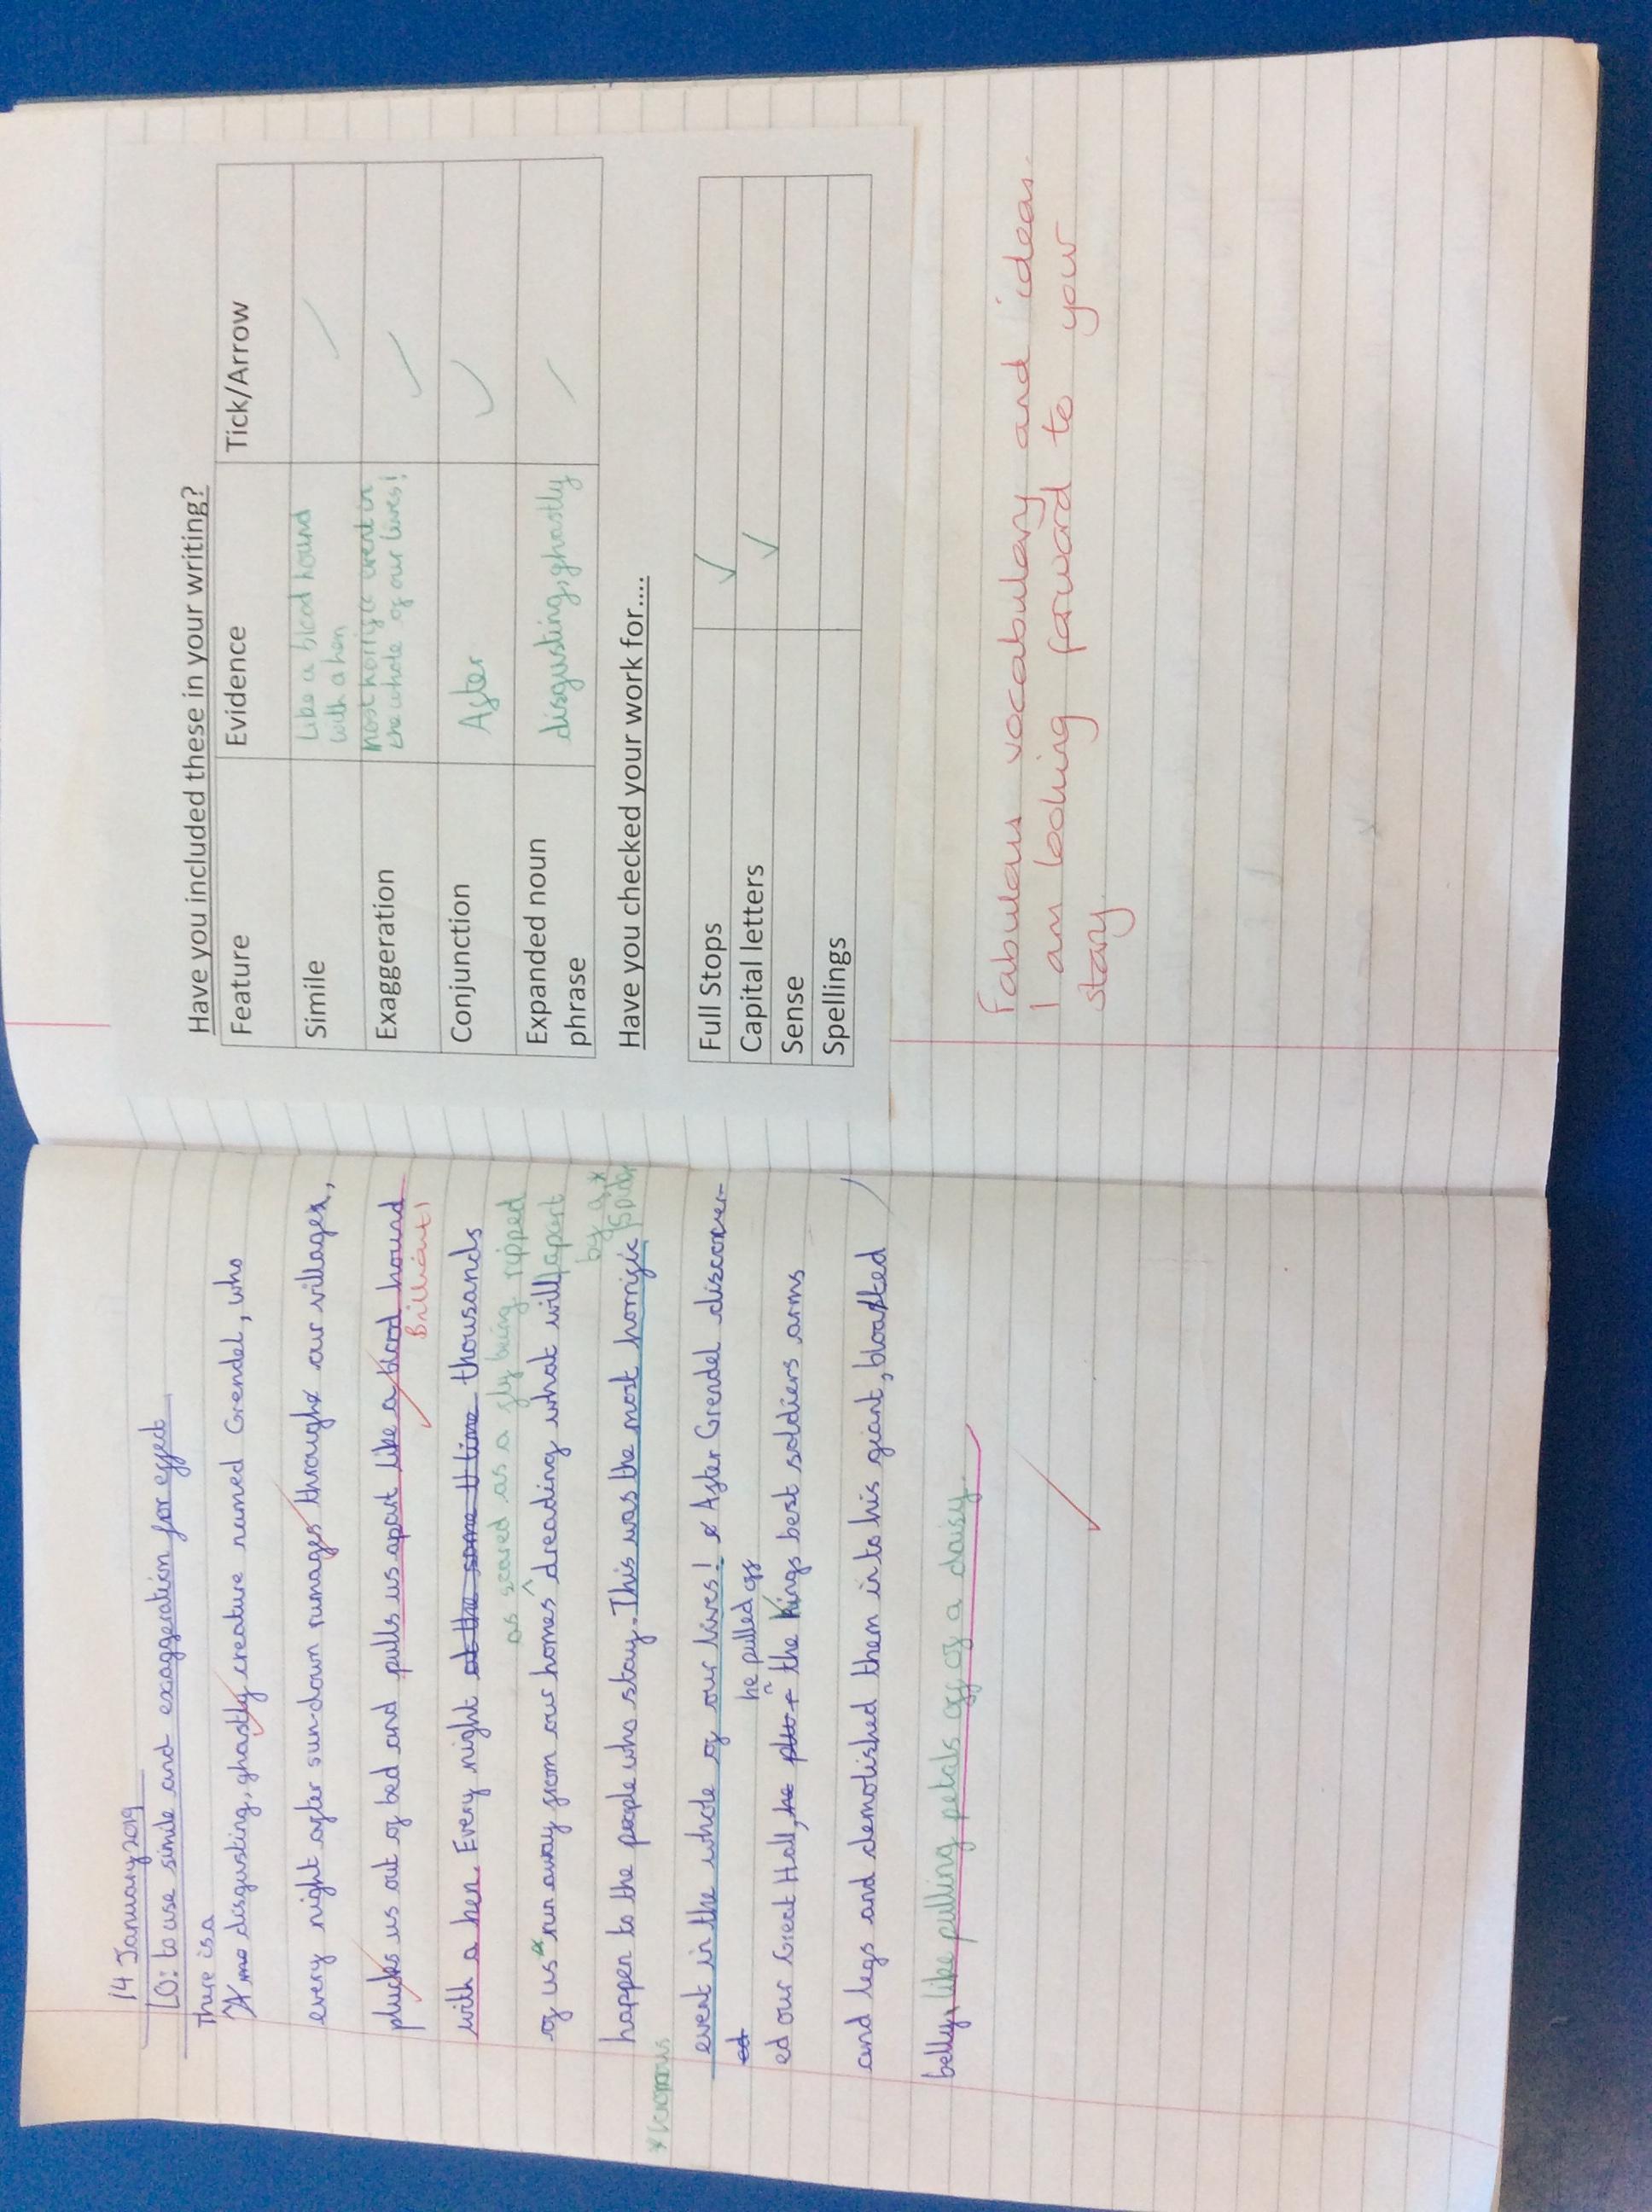 14 January 2019
LO: to use simile and exaggeration for effect
There is a
disgusting, ghastly creature named Grendel, who
every night after sun-down rumages through our villages,
plucks us out of bed and pulls us apart like a blood hound
Brilliant!
with a hen. Every night at the same time thousands
as scared as a fly being ripped
of us run away from our homes dreading what will apart
by a *
happen to the people who stay. This was the most horrific spider
*
event in the whole of our lives! After Grendel discover-
ed
he pulled off
ed our Great Hall, he the kings best soldiers arms
and legs and demolished them in to his giant, bloated
belly, like pulling petals off of a daisy.
Have you included these in your writing?
Feature Evidence Tick/Arrow
Simile Like a blood hound
with a hen
Exaggeration most horrific event in
the whole of our lives!
Conjunction After
Expanded noun disgusting, ghastly
phrase
Have you checked your work for....
Full Stops ✓
Capital letters ✓
Sense
Spellings
Fabulous vocabulary and ideas.
I am looking forward to your
story